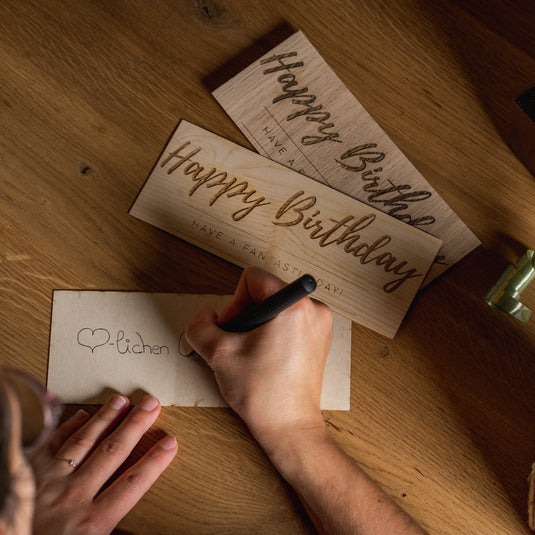 Happy Birthday
HAVE A F
Happy Birthday
HAVE A FANTASTIC DAY!
♡-lichen